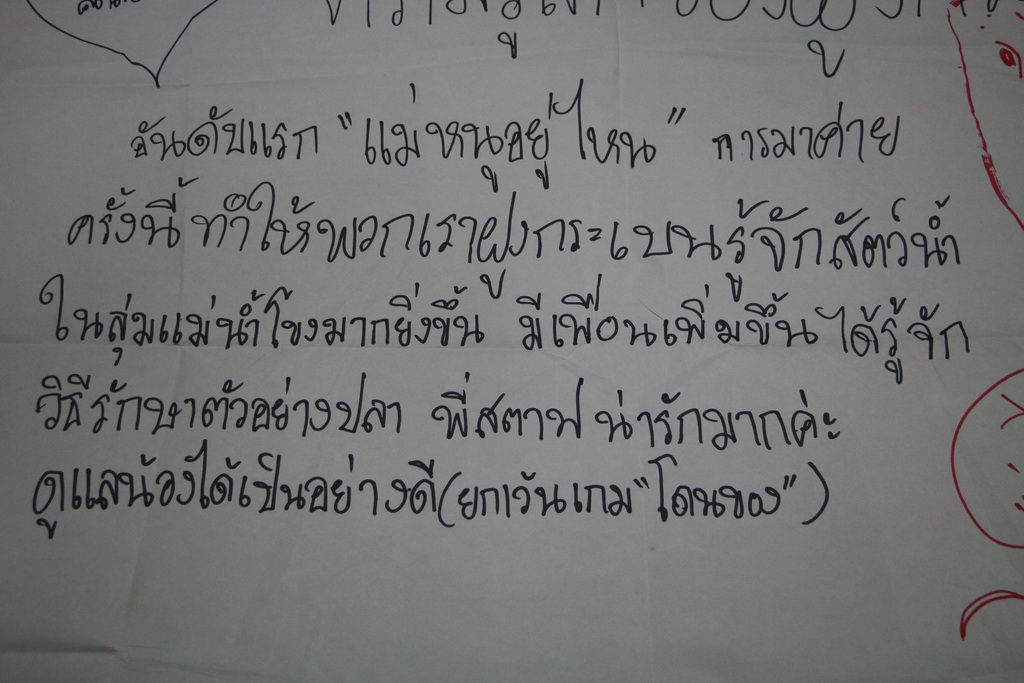 อันดับแรก "แม่หนูอยู่ไหน" การมาค่าย
ครั้งนี้ ทำให้พวกเราฝูงกระเบนรู้จักสัตว์น้ำ
ในลุ่มแม่น้ำโขงมากยิ่งขึ้น มีเพื่อนเพิ่มขึ้น ได้รู้จัก
วิธีรักษาตัวอย่างปลา พี่สตาฟน่ารักมากค่ะ
ดูแลน้องได้เป็นอย่างดี(ยกเว้นเกม"โดนของ")